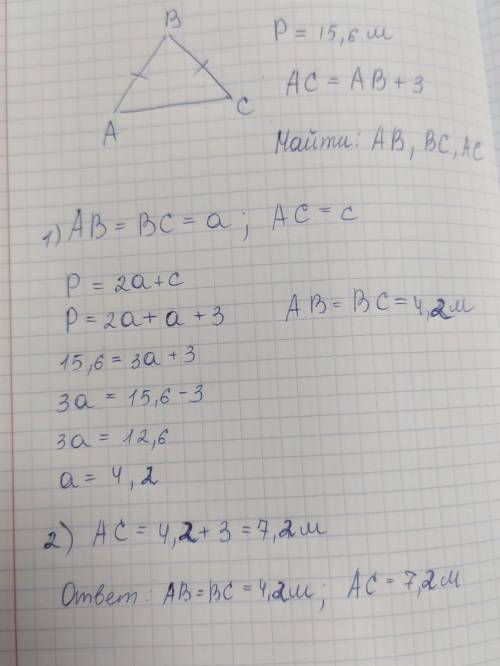 B
A
C
P = 15,6 м
AC = AB + 3
Найти: AB, BC, AC
1) AB = BC = a ; AC = c
P = 2a + c
P = 2a + a + 3
AB = BC = 4,2 м
15,6 = 3a + 3
3a = 15,6 - 3
3a = 12,6
a = 4,2
2) AC = 4,2 + 3 = 7,2 м
Ответ: AB = BC = 4,2 м ; AC = 7,2 м